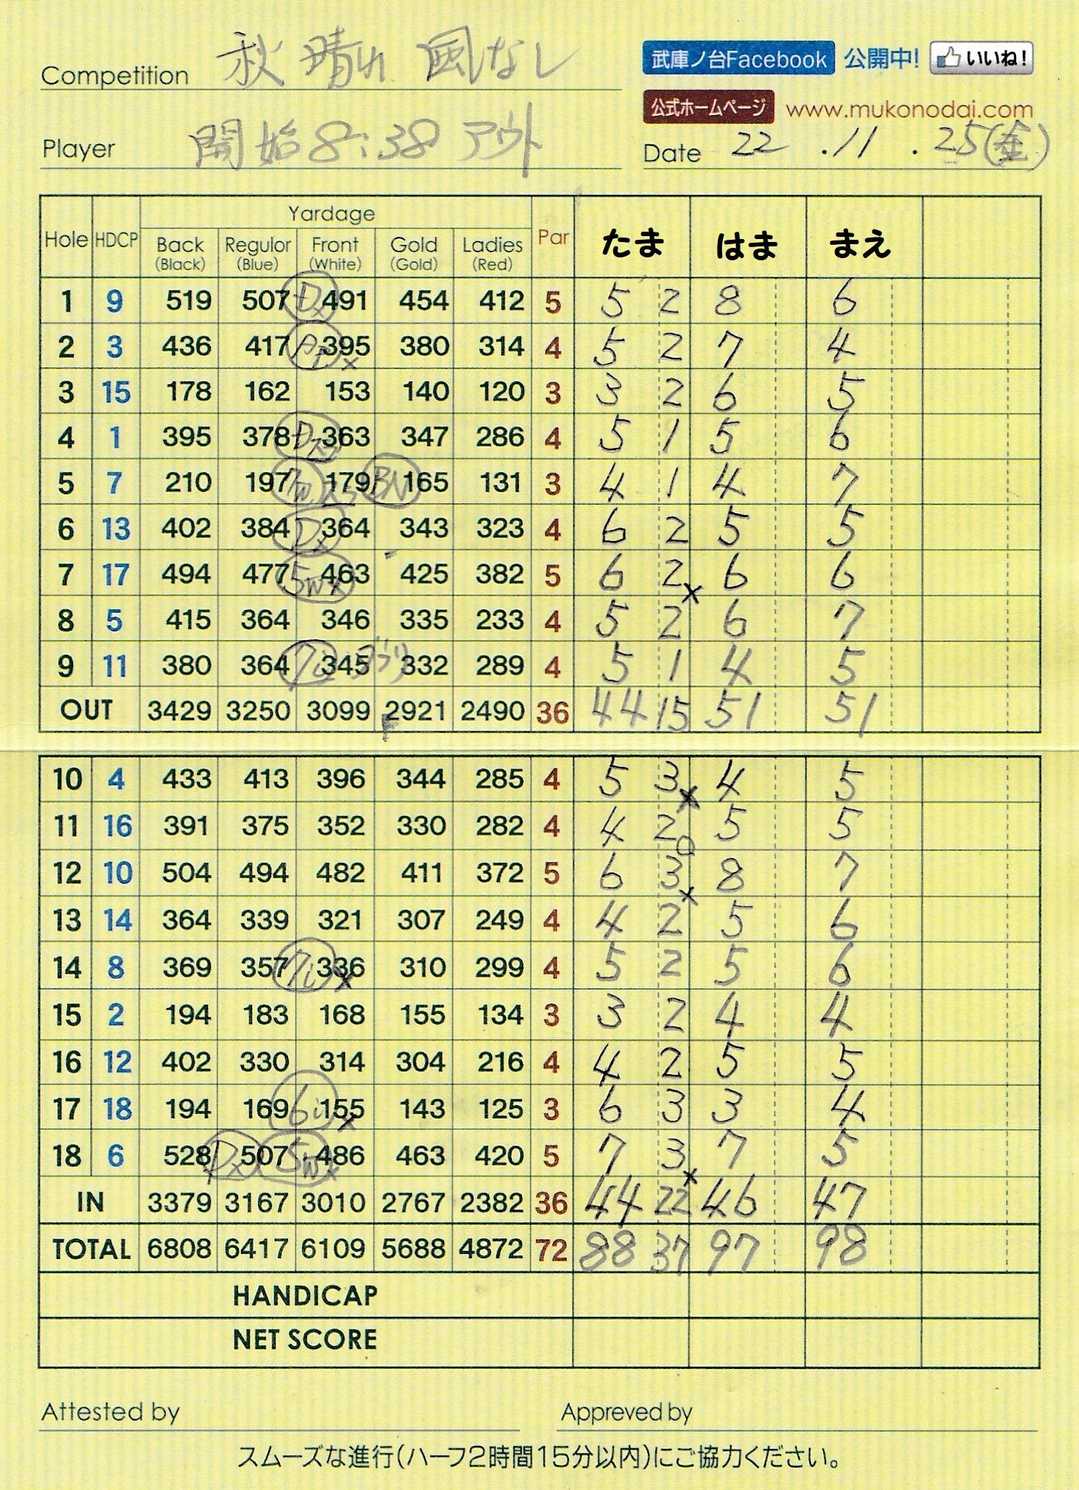 Competition 秋晴れ 風なし
武庫ノ台Facebook 公開中! いいね!
公式ホームページ www.mukonodai.com
Player 開始8:38 アウト
Date 22.11.25(金)
Hole HDCP Yardage Par たま はま まえ
Back (Black) Regulor (Blue) Front (White) Gold (Gold) Ladies (Red)
1 9 519 507 Dx 491 454 412 5 5 2 8 6
2 3 436 417 395 380 314 4 5 2 7 4
3 15 178 162 153 140 120 3 3 2 6 5
4 1 395 378 363 347 286 4 5 1 5 6
5 7 210 197 179 165 131 3 4 1 4 7
6 13 402 384 Dx 364 343 323 4 6 2 5 5
7 17 494 477 5Wx 463 425 382 5 6 2x 6 6
8 5 415 364 346 335 233 4 5 2 6 7
9 11 380 364 7i 345 332 289 4 5 1 4 5
OUT 3429 3250 3099 2921 2490 36 44 15 51 51
10 4 433 413 396 344 285 4 5 3x 4 5
11 16 391 375 352 330 282 4 4 2 5 5
12 10 504 494 482 411 372 5 6 3x 8 7
13 14 364 339 321 307 249 4 4 2 5 6
14 8 369 357 7ix 336 310 299 4 5 2 5 6
15 2 194 183 168 155 134 3 3 2 4 4
16 12 402 330 314 304 216 4 4 2 5 5
17 18 194 169 6ix 155 143 125 3 6 3 3 4
18 6 528 Dx 507 5Wx 486 463 420 5 7 3x 7 5
IN 3379 3167 3010 2767 2382 36 44 22 46 47
TOTAL 6808 6417 6109 5688 4872 72 88 37 97 98
HANDICAP
NET SCORE
Attested by
Appreved by
スムーズな進行(ハーフ2時間15分以内)にご協力ください。